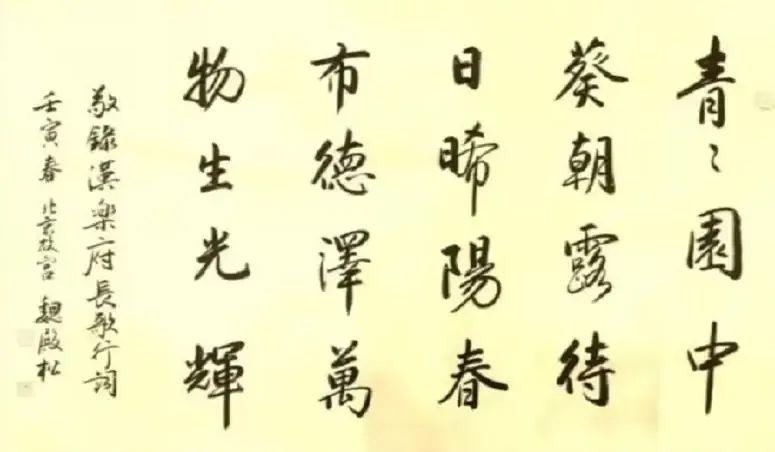 青〻園中
葵朝露待
日晞陽春
布德澤萬
物生光輝
敬錄漢樂府長歌行詞
壬寅春北京故宮魏殿松